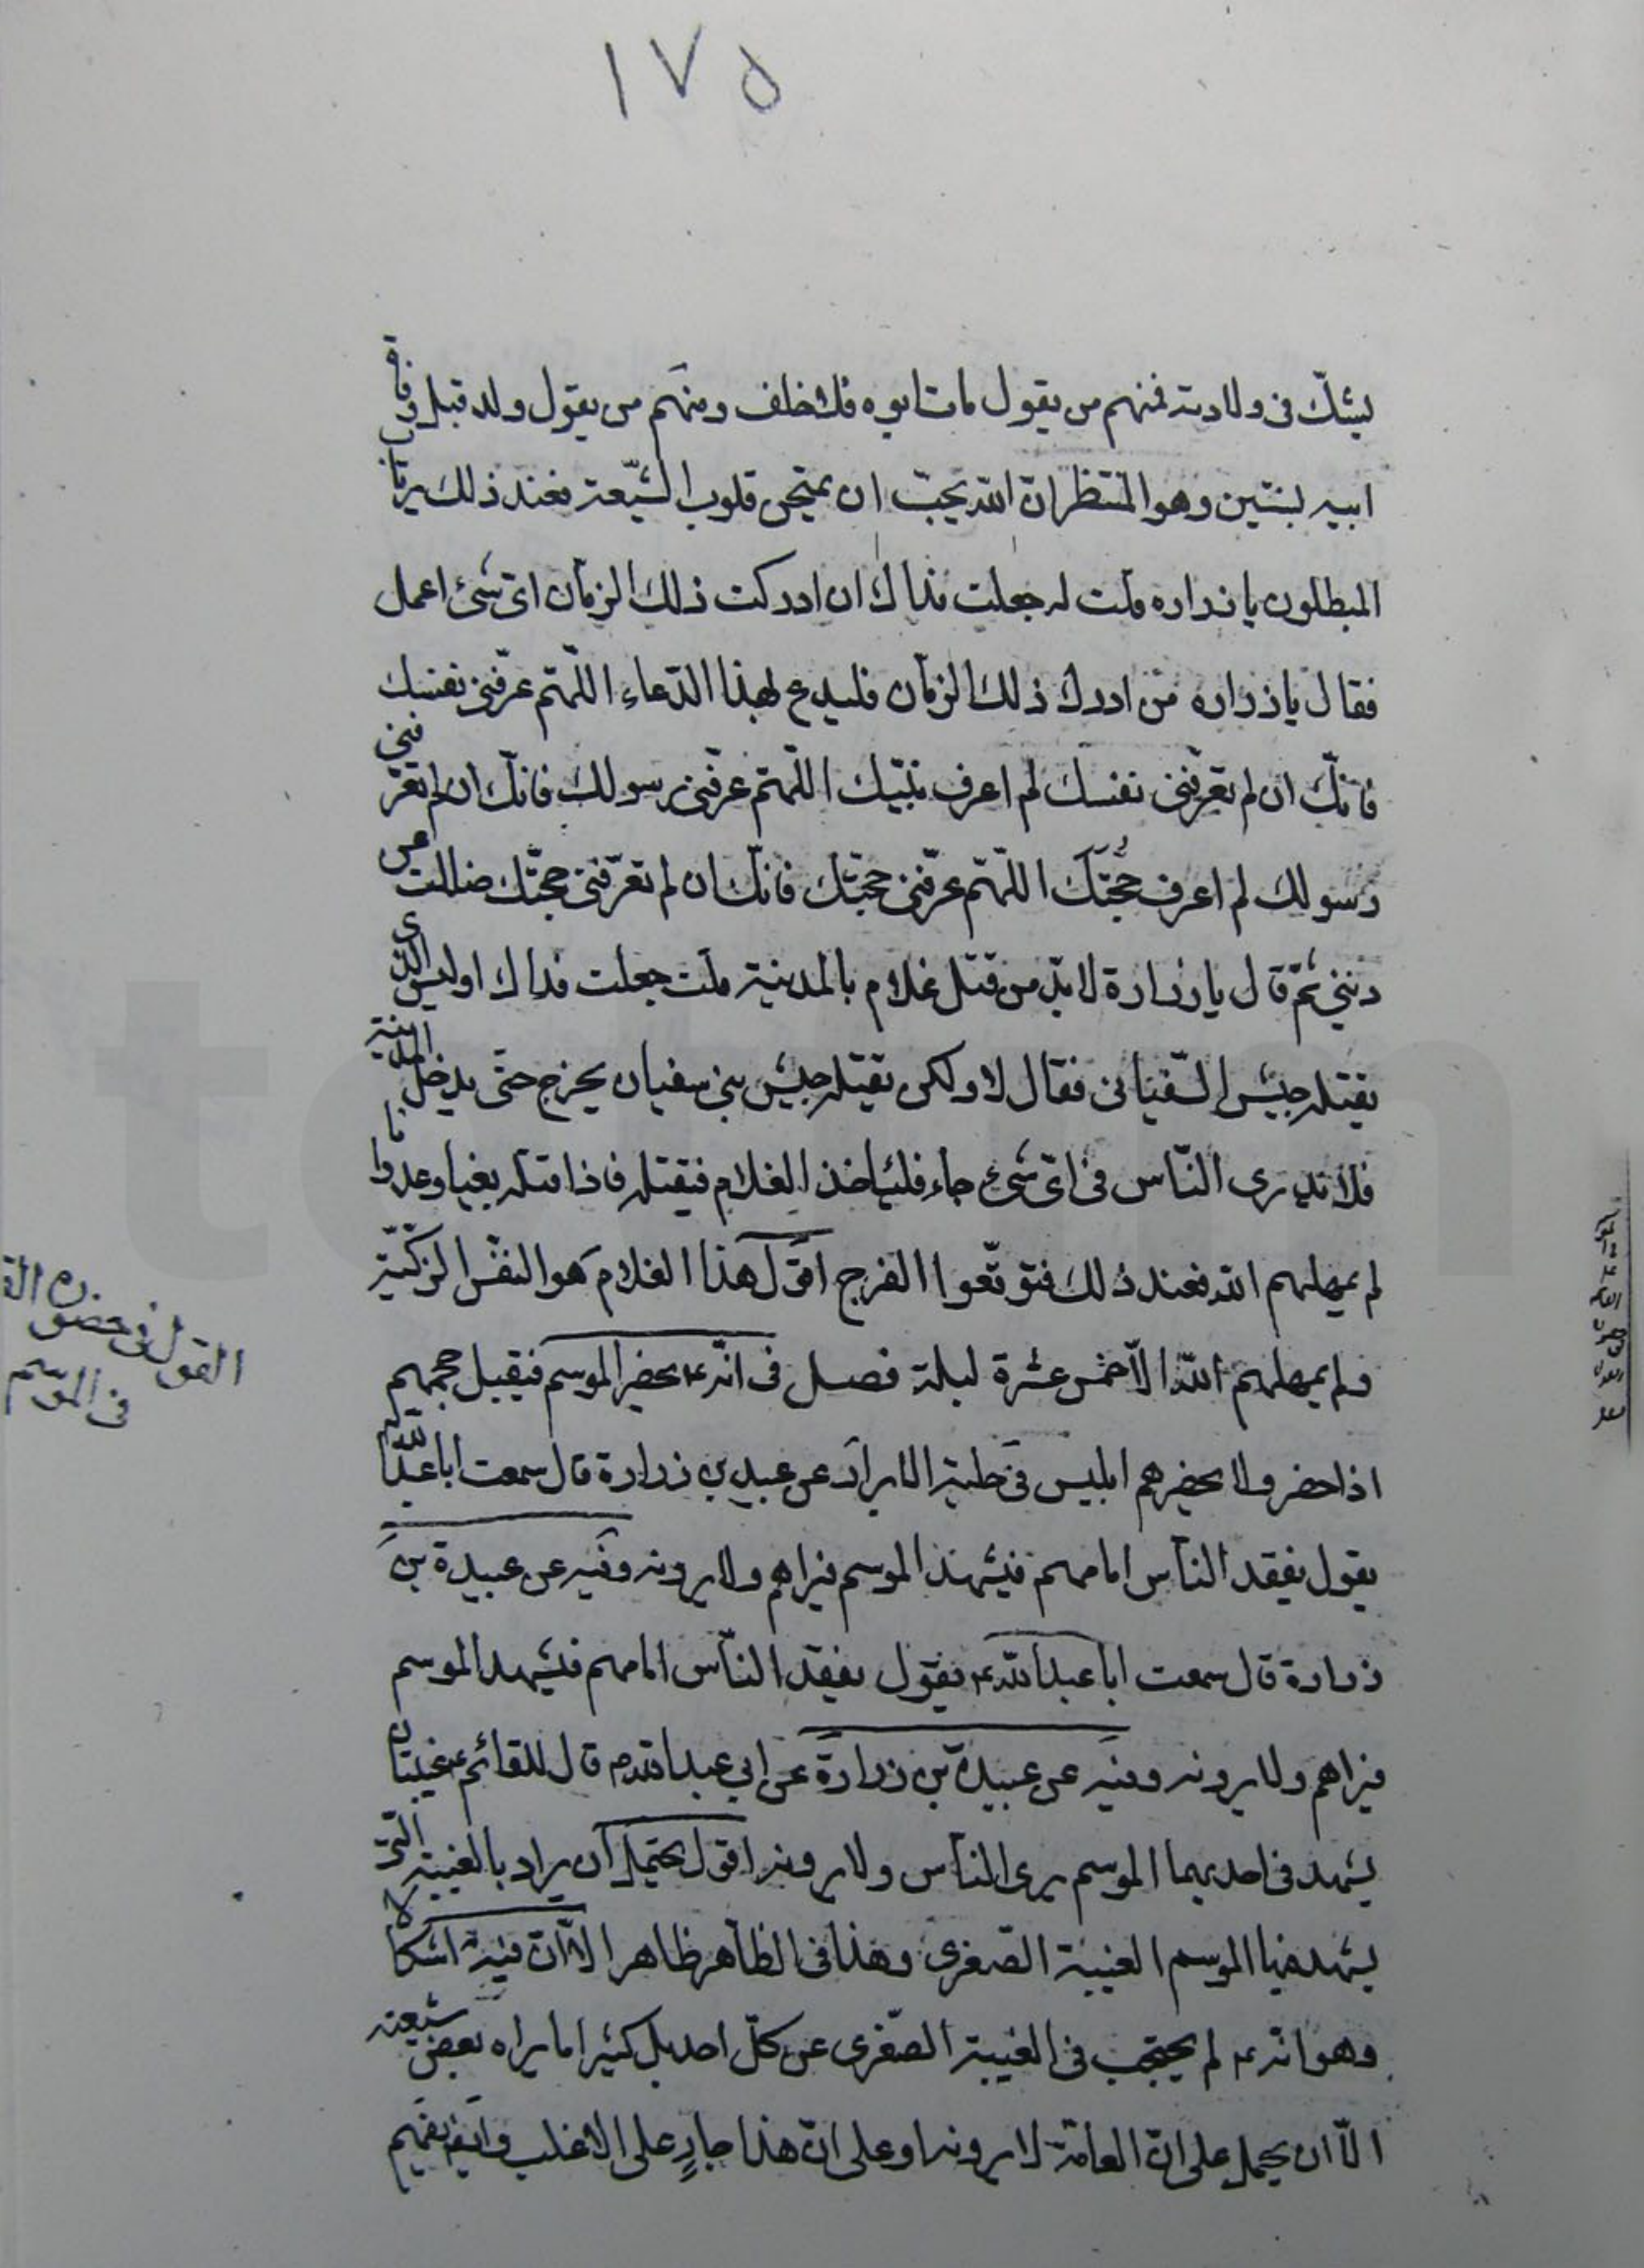 ١٧٥
يشك فى ولادته فمنهم من يقول مات ابوه فلا خلف ومنهم من يقول ولد قبل وفاة
ابيه بسنتين وهو المنتظر ان الله يحب ان يمتحن قلوب الشيعة فعند ذلك يرتاب
المبطلون يا زراره قلت له جعلت فداك ان ادركت ذلك الزمان اى شئ اعمل
فقال يا زراره من ادرك ذلك الزمان فليدع بهذا الدعاء اللهم عرفنى نفسك
فانك ان لم تعرفنى نفسك لم اعرف نبيك اللهم عرفنى رسولك فانك ان لم تعرفنى
رسولك لم اعرف حجتك اللهم عرفنى حجتك فانك ان لم تعرفنى حجتك ضللت عن
دينى ثم قال يا زرارة لا بد من قتل غلام بالمدينة قلت جعلت فداك اوليس الذى
يقتله جيش السفيانى فقال لا ولكن يقتله جيش بنى سفيان يخرج حتى يدخل المدينة
فلا يدرى الناس فى اى شئ جاء فلياخذ الغلام فيقتله فاذا قتله بغيا وعدوانا
لم يمهلهم الله فعند ذلك فتوقعوا الفرج اقول هذا الغلام هو النفس الزكية
ولم يمهلهم الله الا خمس عشرة ليلة فصل فى انه ع يحضر الموسم فيقبل حجهم
اذا حضر ولا يحضرهم ابليس فى حلية الابرار عن عبيد بن زرارة قال سمعت ابا عبد الله
يقول يفقد الناس امامهم فيشهد الموسم فيراهم ولا يرونه وفيه عن عبيدة بن
زرارة قال سمعت ابا عبد الله ع يقول يفقد الناس امامهم فيشهد الموسم
فيراهم ولا يرونه وفيه عن عبيدة بن زرارة عن ابي عبد الله ع قال للقائم ع غيبتان
يشهد فى احديهما الموسم يرى الناس ولا يرونه اقول يحتمل ان يراد بالغيبة التى
يشهد فيها الموسم الغيبة الصغرى وهذا فى الظاهر ظاهر الا ان فيه اشكالا
وهو انه ع لم يحتجب فى الغيبة الصغرى عن كل احد بل كثيرا ما يراه بعض شيعته
الا ان يحمل على ان العامة لا يرونه او على ان هذا جارٍ على الاغلب وايض يفهم
القول فى حضوره
فى الموسم